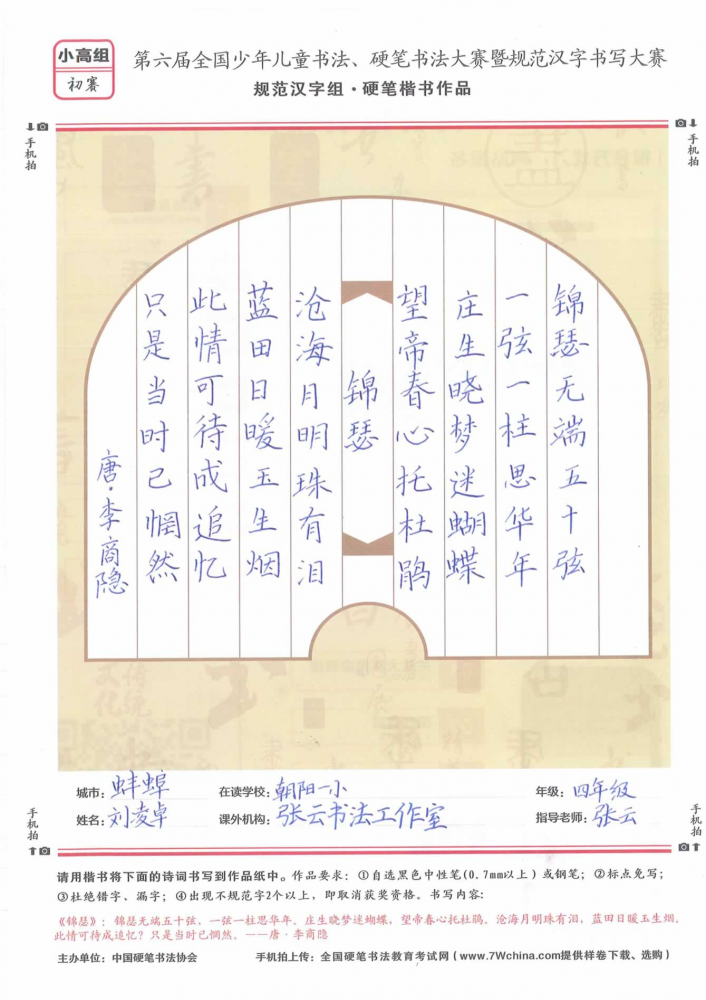 小高组
初赛
第六届全国少年儿童书法、硬笔书法大赛暨规范汉字书写大赛
规范汉字组·硬笔楷书作品
手机拍
手机拍
锦瑟无端五十弦
一弦一柱思华年
庄生晓梦迷蝴蝶
望帝春心托杜鹃
锦瑟
沧海月明珠有泪
蓝田日暖玉生烟
此情可待成追忆
只是当时已惘然
唐·李商隐
城市：蚌埠 在读学校：朝阳一小 年级：四年级
姓名：刘凌卓 课外机构：张云书法工作室 指导老师：张云
手机拍
手机拍
请用楷书将下面的诗词书写到作品纸中。作品要求：①自选黑色中性笔(0.7mm以上)或钢笔；②标点免写；
③杜绝错字、漏字；④出现不规范字2个以上，即取消获奖资格。书写内容：
《锦瑟》：锦瑟无端五十弦，一弦一柱思华年。庄生晓梦迷蝴蝶，望帝春心托杜鹃。沧海月明珠有泪，蓝田日暖玉生烟。
此情可待成追忆？只是当时已惘然。——唐·李商隐
主办单位：中国硬笔书法协会 手机拍上传：全国硬笔书法教育考试网（www.7Wchina.com提供样卷下载、选购）